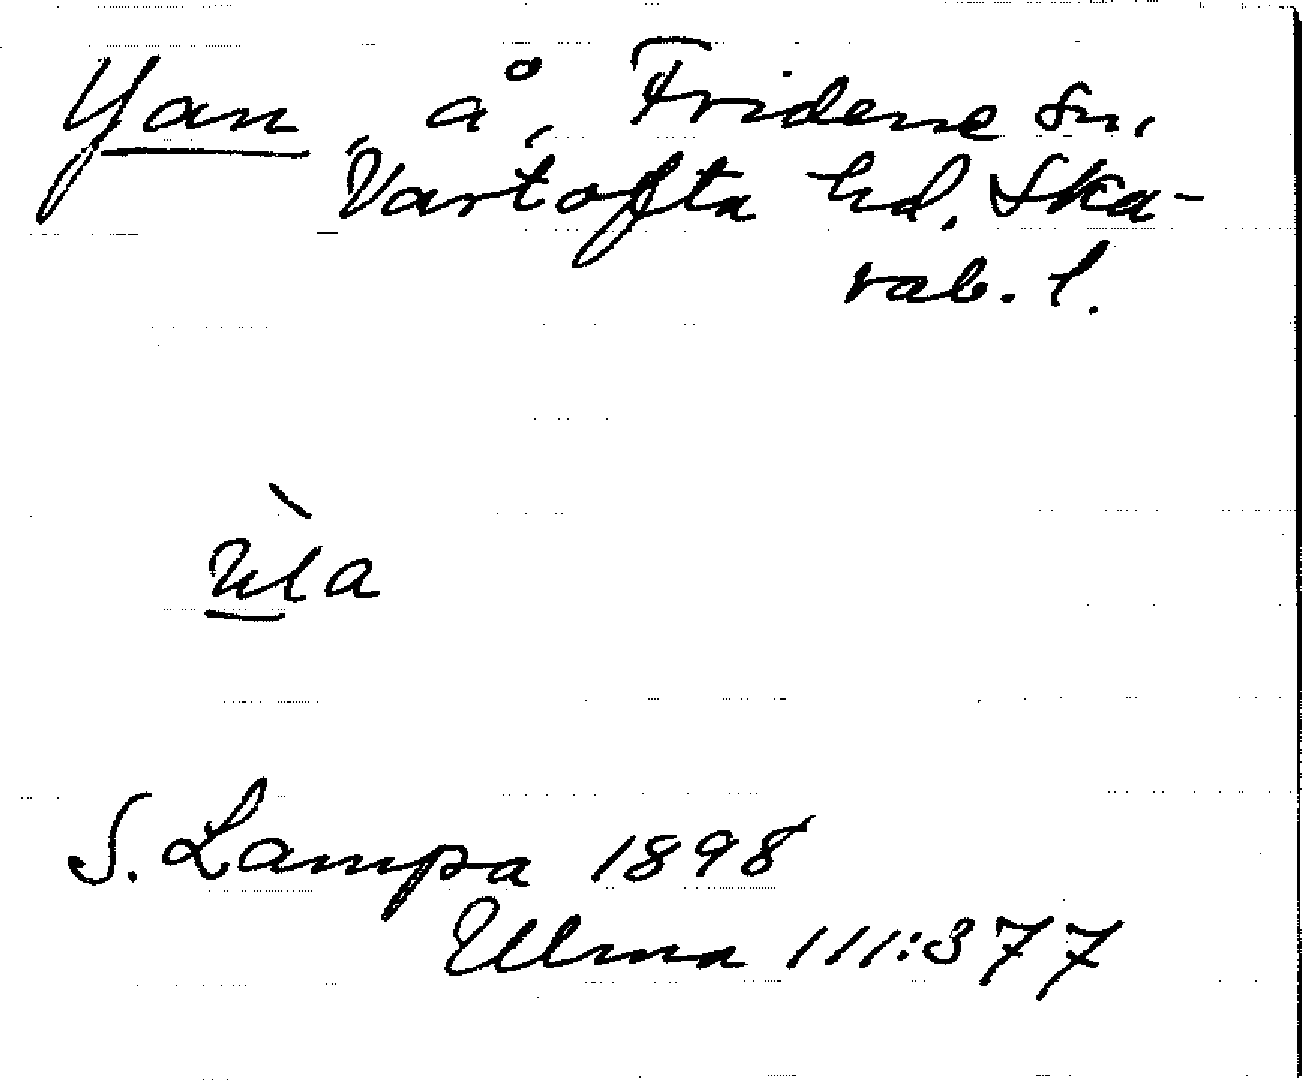 Yan, å, Fridene sn,
Vartofta hd. Ska-
rab. l.
S. Lampa 1898
Ulma 111:377